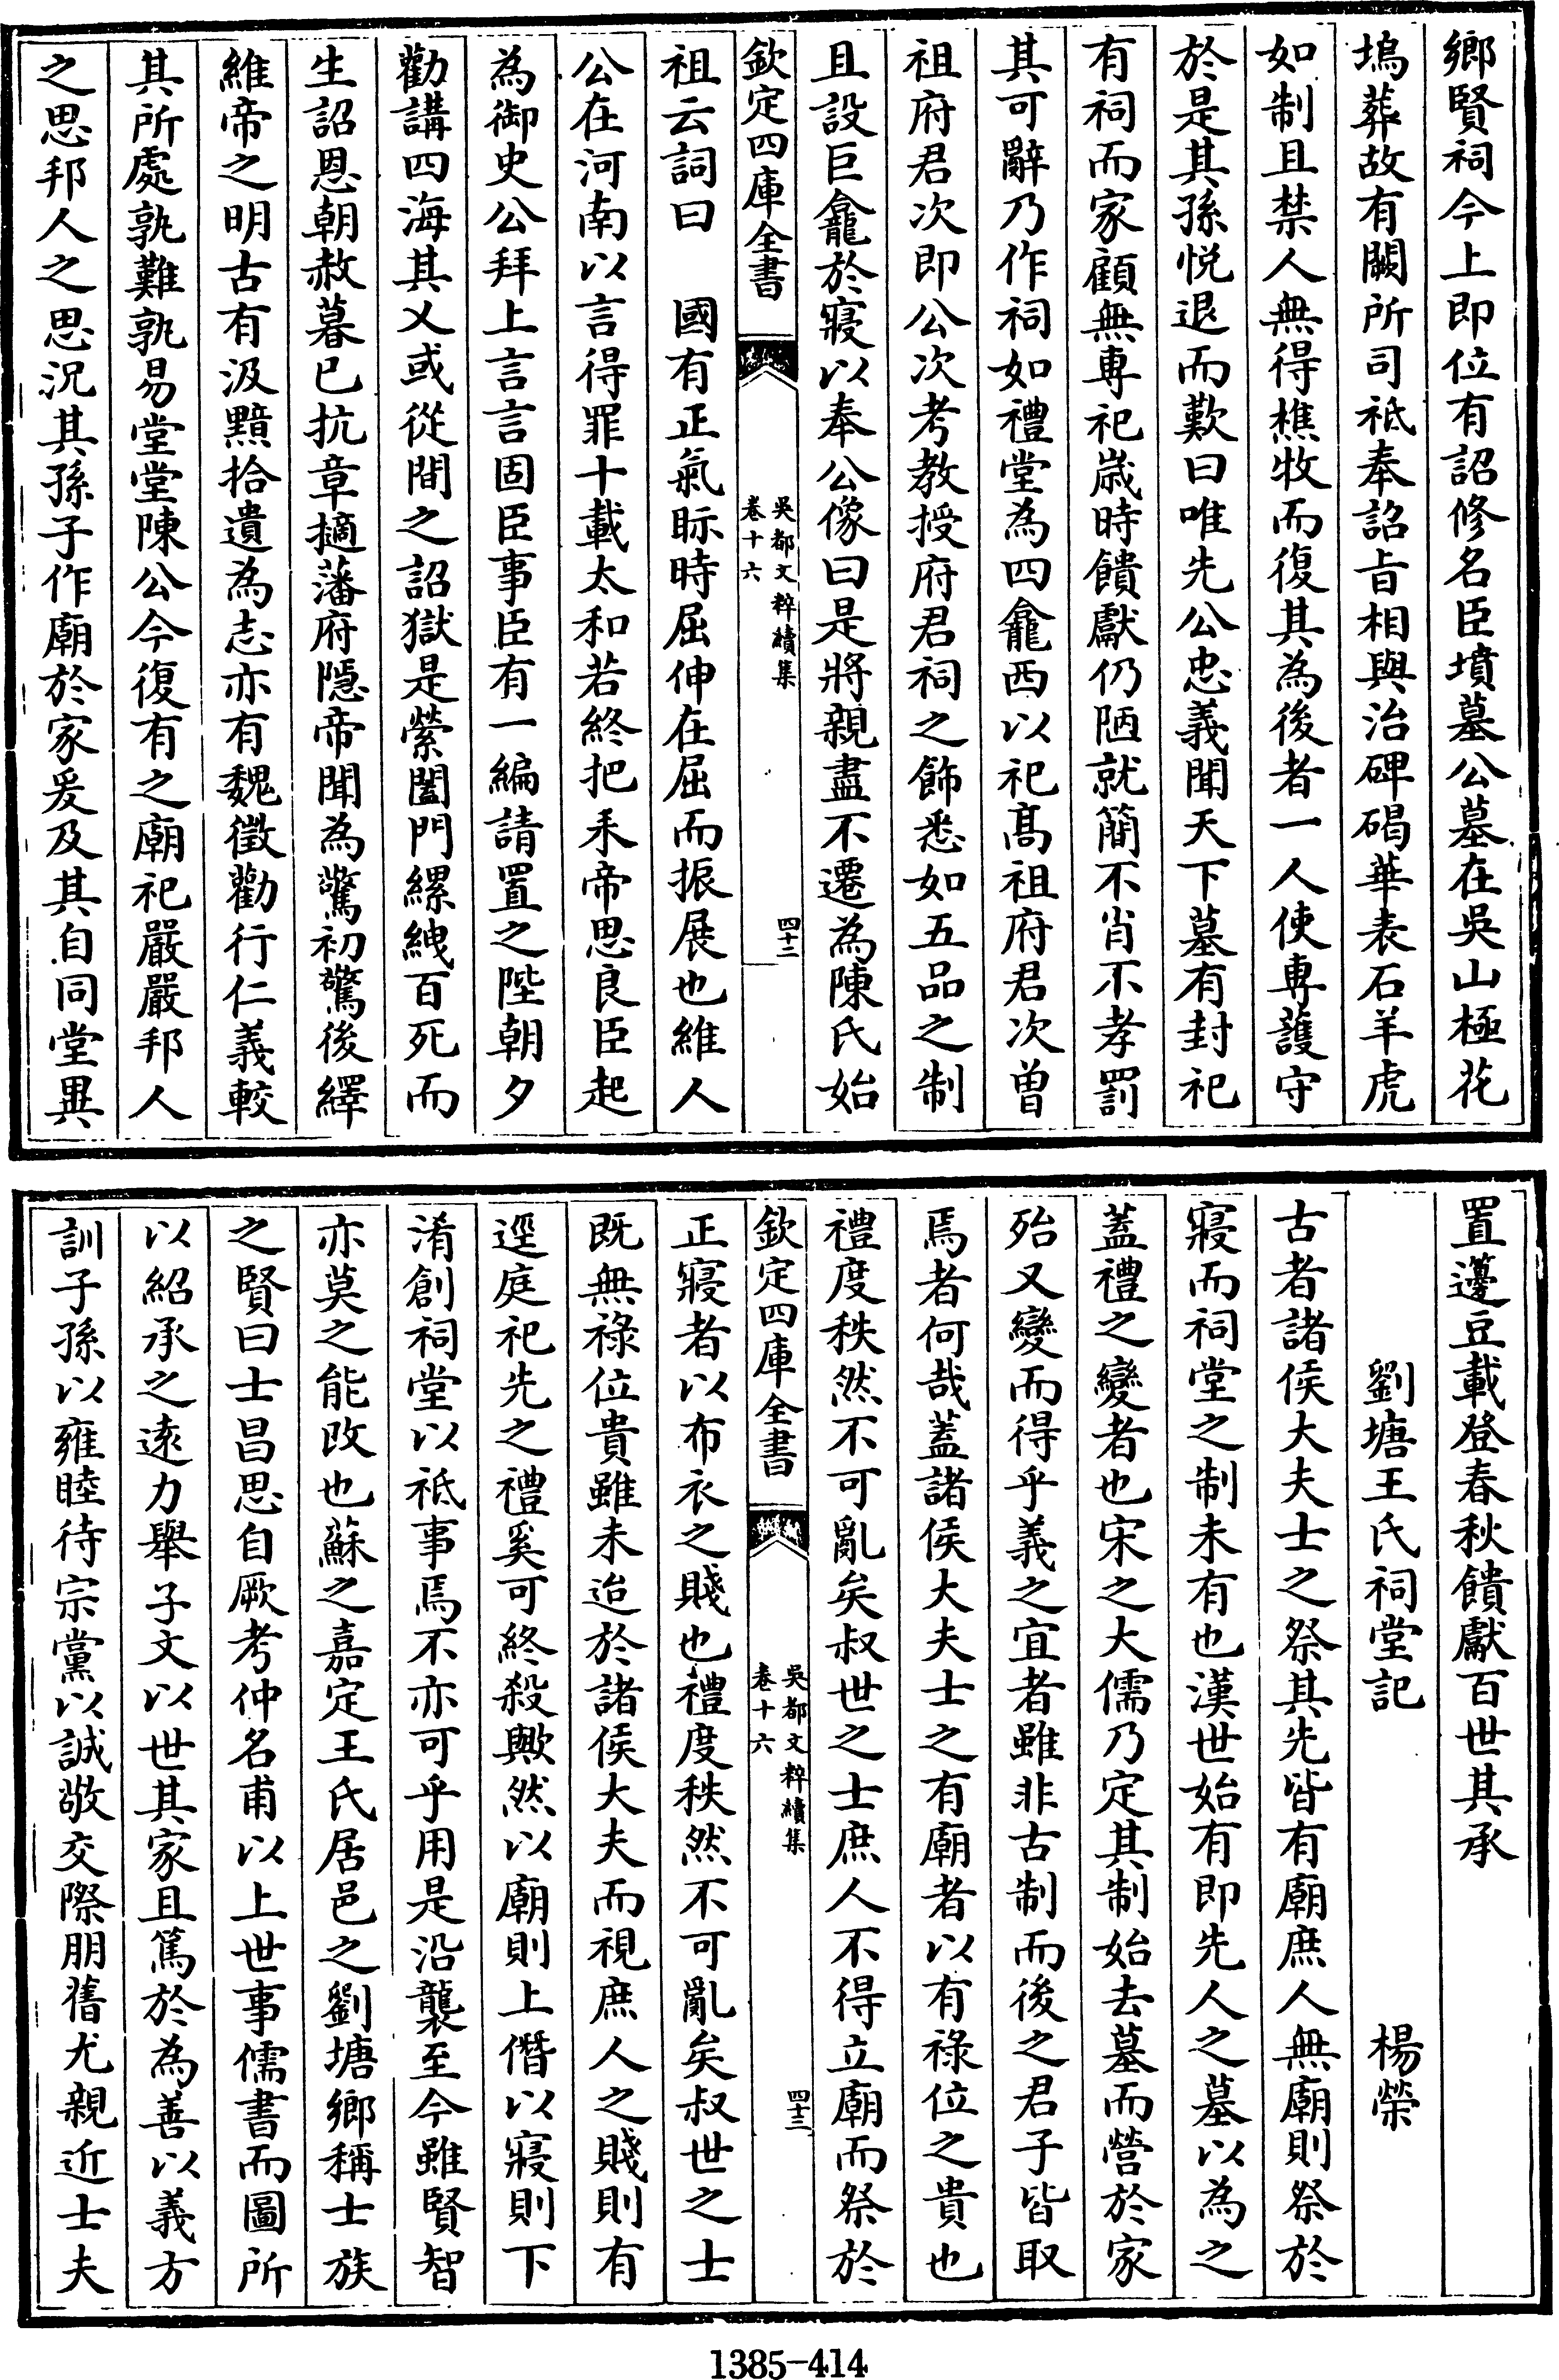 鄉賢祠今上即位有詔修名臣墳墓公墓在吳山極花
塢葬故有闕所司祗奉詔旨相與治碑碣華表石羊虎
如制且禁人無得樵牧而復其為後者一人使專護守
於是其孫悅退而歎曰唯先公忠義聞天下墓有封祀
有祠而家顧無專祀嵗時饋獻仍陋就簡不肖不孝罰
其可辭乃作祠如禮堂為四龕西以祀髙祖府君次曾
祖府君次即公次考教授府君祠之飾悉如五品之制
且設巨龕於寢以奉公像曰是將親盡不遷為陳氏始
欽定四庫全書
吳都文粹續集
卷十六
四十二
祖云詞曰 國有正氣眎時屈伸在屈而振展也維人
公在河南以言得罪十載太和若終把耒帝思良臣起
為御史公拜上言言固臣事臣有一編請置之陛朝夕
勸講四海其乂或從間之詔獄是縈闔門縲絏百死而
生詔恩朝赦暮已抗章擿藩府隱帝聞為驚初驚後繹
維帝之明古有汲黯拾遺為志亦有魏徵勸行仁義較
其所處孰難孰易堂堂陳公今復有之廟祀嚴嚴邦人
之思邦人之思況其孫子作廟於家爰及其自同堂異
置籩豆載登春秋饋獻百世其承
劉塘王氏祠堂記 楊榮
古者諸侯大夫士之祭其先皆有廟庶人無廟則祭於
寢而祠堂之制未有也漢世始有即先人之墓以為之
蓋禮之變者也宋之大儒乃定其制始去墓而營於家
殆又變而得乎義之宜者雖非古制而後之君子皆取
焉者何哉蓋諸侯大夫士之有廟者以有祿位之貴也
禮度秩然不可亂矣叔世之士庶人不得立廟而祭於
欽定四庫全書
吳都文粹續集
卷十六
四十三
正寢者以布衣之賤也禮度秩然不可亂矣叔世之士
既無祿位貴雖未迨於諸侯大夫而視庶人之賤則有
逕庭祀先之禮奚可終殺歟然以廟則上僭以寢則下
淆創祠堂以祗事焉不亦可乎用是沿襲至今雖賢智
亦莫之能改也蘇之嘉定王氏居邑之劉塘鄉稱士族
之賢曰士昌思自厥考仲名甫以上世事儒書而圖所
以紹承之逺力舉子文以世其家且篤於為善以義方
訓子孫以雍睦待宗黨以誠敬交際朋舊尤親近士夫
1385-414